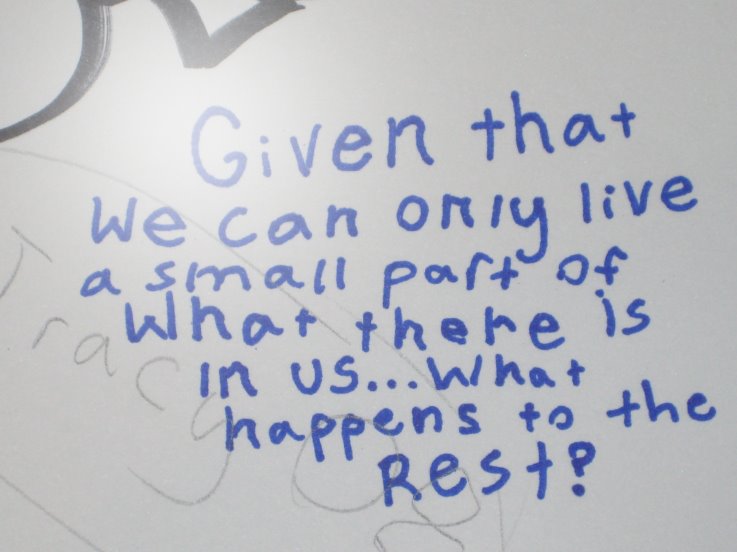 Given that
We can only live
a small part of
What there is
in us...What
happens to the
Rest?
Tracy